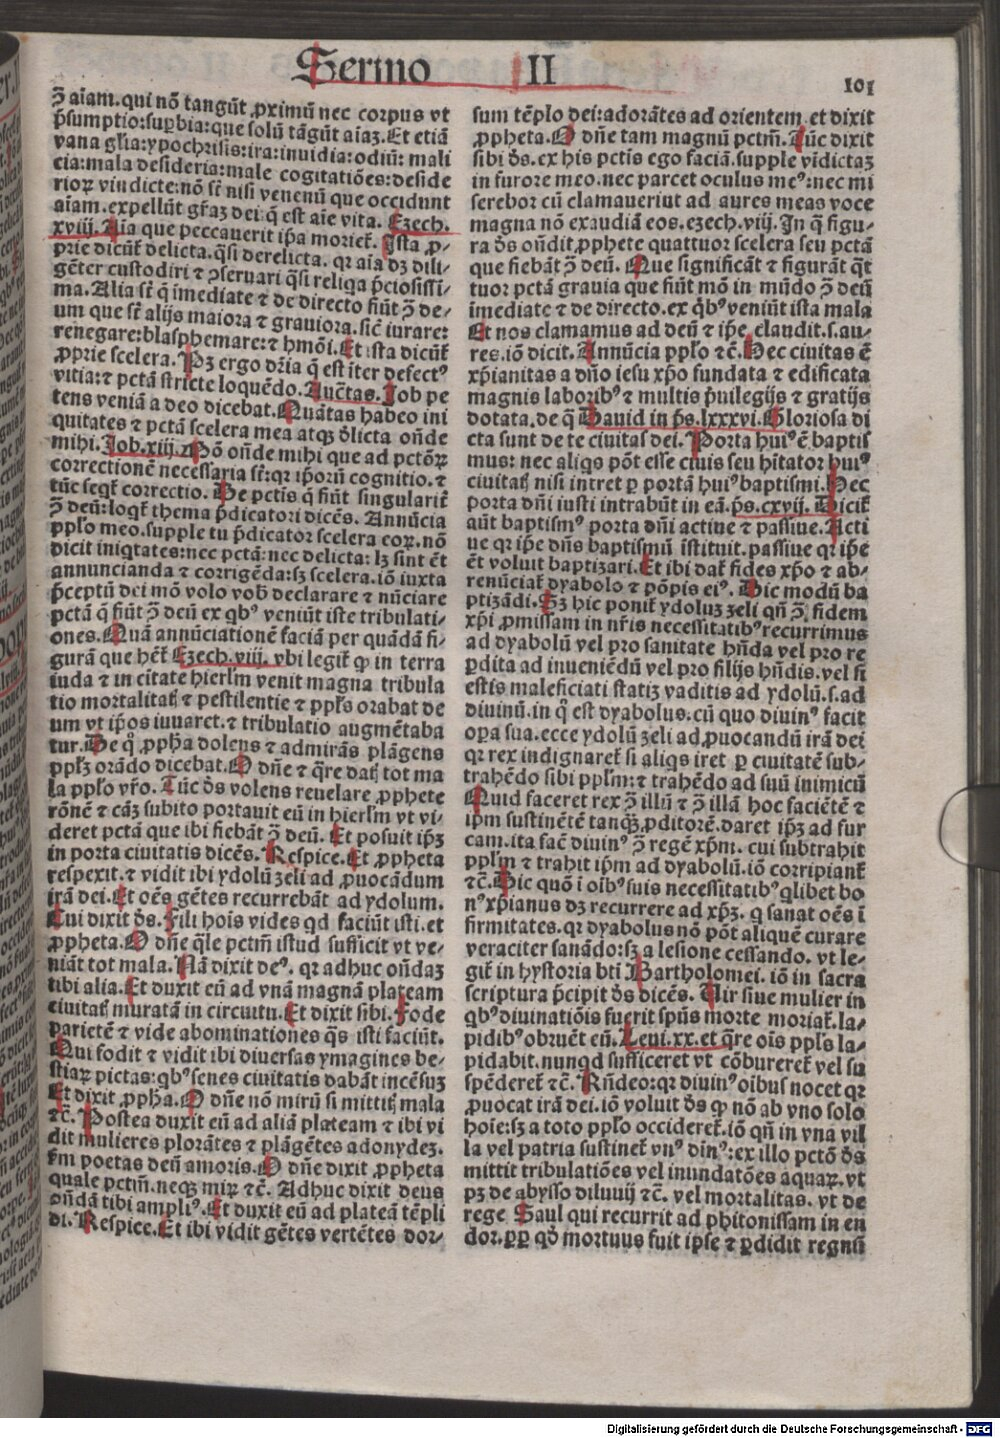 Sermo II
101
ↄ̄ aīam. qui nō tangūt ꝓximū nec corpus vt
p̄sumptio: supbia: que solū tāgūt aīaꝫ. Et etiā
vana gl̄ia: ypochrisis: ira: inuidia: odiū: mali
cia: mala desideria: male cogitatiōes: deside
rioꝝ vindicte: nō sūt nisi venenū que occidunt
aīam. expellūt gr̄aꝫ dei q̄ est aīe vita. Ezech.
xviij. Aīa que peccauerit ip̄a moriet̄. Ista ꝓ-
prie dicūt̄ delicta. q̄si derelicta. qꝛ aīa dꝫ dili-
gēter custodiri ⁊ ↄseruari q̄si reliq̄a p̄ciosissi-
ma. Alia sūt q̄ imediate ⁊ de directo fiūt ↄ̄ de-
um que sūt alijs maiora ⁊ grauiora. sic̄ iurare:
renegare: blasphemare: ⁊ hmōi. Et ista dicūt̄
ꝓprie scelera. Pꝫ ergo dr̄ia q̄ est iter defectꝰ
vitia: ⁊ pctā stricte loquēdo. Auctas. Job pe
tens veniā a deo dicebat. Quātas habeo ini
quitates ⁊ pctā scelera mea atqꝫ d̄licta oñde
mihi. Job. xiij. Nō oñde mihi que ad pctōꝝ
correctionē necessaria sūt: qꝛ ip̄orū cognitio. ⁊
tūc seqt̄ correctio. De pctis q̄ fiūt singularit̄
ↄ̄ deū: loqt̄ thema p̄dicatori dicēs. Annūcia
pplo meo. supple tu p̄dicator scelera eoꝝ. nō
dicit iniqtates: nec pctā: nec delicta: lꝫ sint ēt
annuncianda ⁊ corrigēda: sꝫ scelera. iō iuxta
p̄ceptū dei mō volo vob̄ declarare ⁊ nūciare
pctā q̄ fiūt ↄ̄ deū ex qbꝰ veniūt iste tribulati-
ones. Quā annūciationē faciā per quādā fi-
gurā que hēt̄ Ezech. viij. vbi legit̄ ꝙ in terra
iuda ⁊ in citate hierlm̄ venit magna tribula
tio mortalitat̄ ⁊ pestilentie ⁊ ppl̄s orabat de
um vt ip̄os iuuaret. ⁊ tribulatio augmētaba
tur. De q̊ ꝓpha dolens ⁊ admirās plāgens
pplꝫ orādo dicebat. O dñe ⁊ q̄re dat̄ tot ma
la pplo vr̄o. Tūc d̄s volens reuelare ꝓphete
rōnē ⁊ cāꝫ subito portauit eū in hierlm̄ vt vi-
deret pctā que ibi fiebāt ↄ̄ deū. Et posuit ip̄ꝫ
in porta ciuitatis dicēs. Respice. Et ꝓpheta
respexit. ⁊ vidit ibi ydolū zeli ad ꝓuocādum
irā dei. Et oēs gētes recurrebāt ad ydolum.
Cui dixit d̄s. Fili hoīs vides qd faciūt isti. et
ꝓpheta. O dñe q̄le pctm̄ istud sufficit vt ve-
niāt tot mala. Nā dixit deꝰ. qꝛ adhuc oñdaꝫ
tibi alia. Et duxit eū ad vnā magnā plateam
ciuitat̄ muratā in circuitu. Et dixit sibi. Fode
parietē ⁊ vide abominationes q̄s isti faciūt.
Qui fodit ⁊ vidit ibi diuersas ymagines be-
stiaꝝ pictas: qbꝰ senes ciuitatis dabāt incēsuꝫ
Et dixit ꝓpha. O dñe nō mirū si mittit̄ mala
⁊c̄. Postea duxit eū ad aliā plateam ⁊ ibi vi
dit mulieres plorātes ⁊ plāgētes adonydeꝫ.
fm̄ poetas deū amoris. O dñe dixit ꝓpheta
quale pctm̄. neqꝫ miꝝ ⁊c̄. Adhuc dixit deus
oñdā tibi ampliꝰ. Et duxit eū ad plateā tēpli
di. Respice. Et ibi vidit gētes vertētes dor-
sum tēplo dei: adorātes ad orientem et dixit
ꝓpheta. O dñe tam magnū pctm̄. Tūc dixit
sibi d̄s. ex his pctis ego faciā. supple vīdictaꝫ
in furore meo. nec parcet oculus meꝰ: nec mi
serebor cū clamauerint ad aures meas voce
magna nō exaudiā eos. ezech. viij. In q̄ figu-
ra d̄s oñdit ꝓphete quattuor scelera seu pctā
que fiebāt ↄ̄ deū. Que significāt ⁊ figurāt q̄t
tuor pctā grauia que fiūt mō in mūdo ↄ̄ deū
imediate ⁊ de directo. ex q̄bꝰ veniūt ista mala
Et nos clamamus ad deū ⁊ ip̄e claudit. s. au-
res. iō dicit. Annūcia pplo ⁊c̄. Hec ciuitas ē
xp̄ianitas a dño iesu xp̄o fundata ⁊ edificata
magnis laboribꝰ ⁊ multis p̄uilegijs ⁊ gratijs
dotata. de q̄ Dauid in p̄s. lxxxvi. Gloriosa di
cta sunt de te ciuitas dei. Porta huiꝰ ē baptis
mus: nec aliqs pōt esse ciuis seu hītator huiꝰ
ciuitat̄ nisi intret p portā huiꝰ baptismi. Hec
porta dñi iusti intrabūt in eā. p̄s. cxvij. Dicit̄
aūt baptismꝰ porta dñi actiue ⁊ passiue. Acti
ue qꝛ ip̄e dñs baptismū īstituit. passiue qꝛ ip̄e
ēt voluit baptizari. Et ibi dat̄ fides xp̄o ⁊ ab-
renūciat̄ dyabolo ⁊ pōpis eiꝰ. Hic modū ba
ptizādi. Sꝫ hic ponit̄ ydoluꝫ zeli qñ ↄ̄ fidem
xp̄i ꝓmissam in nr̄is necessitatibꝰ recurrimus
ad dyabolū vel pro sanitate hñda vel pro re
ꝑdita ad inueniēdū vel pro filijs hñdis. vel si
estis maleficiati statiꝫ vaditis ad ydolū. s. ad
diuinū. in q̊ est dyabolus. cū quo diuinꝰ facit
opa sua. ecce ydolū zeli ad ꝓuocandū irā dei
qꝛ rex indignaret̄ si aliqs iret ꝑ ciuitatē sub-
trahēdo sibi pplm̄: ⁊ trahēdo ad suū inimicū
Quid faceret rex ↄ̄ illū ⁊ ↄ̄ illā hoc faciētē ⁊
ip̄m sustinētē tanqꝫ ꝓditorē. daret ip̄ꝫ ad fur
cam. ita fac̄ diuinꝰ ↄ̄ regē xp̄m. cui subtrahit
pplm̄ ⁊ trahit ip̄m ad dyabolū. iō corripiant̄
⁊c̄. Dic quō ī oībꝰ suis necessitatibꝰ qlibet bo
nꝰ xp̄ianus dꝫ recurrere ad xp̄ꝫ. q sanat oēs ī
firmitates. qꝛ dyabolus nō pōt aliquē curare
veraciter sanādo: sꝫ a lesione cessando. vt le-
git̄ in hystoria bt̄i Bartholomei. iō in sacra
scriptura p̄cipit d̄s dicēs. Uir siue mulier in
qbꝰ diuinatiōis fuerit spūs morte moriat̄. la-
pidibꝰ obruēt eū. Leui. xx. et q̄re oīs ppl̄s la-
pidabit. nunqd sufficeret vt cōbureret̄ vel su
spēderet̄ ⁊c̄. Rñdeo: qꝛ diuinꝰ oībus nocet qꝛ
ꝓuocat irā dei. iō voluit d̄s ꝙ nō ab vno solo
hoīe: sꝫ a toto pplo occideret̄. iō qñ in vna vil
la vel patria sustinet̄ vnꝰ dīnꝰ: ex illo pctō d̄s
mittit tribulatiōes vel inundatōes aquaꝝ. vt
pꝫ de abysso diluuij ⁊c̄. vel mortalitas. vt de
rege Saul qui recurrit ad phitonissam in en
dor. ꝓp qd mortuus fuit ipse ⁊ ꝑdidit regnū
Digitalisierung gefördert durch die Deutsche Forschungsgemeinschaft - DFG